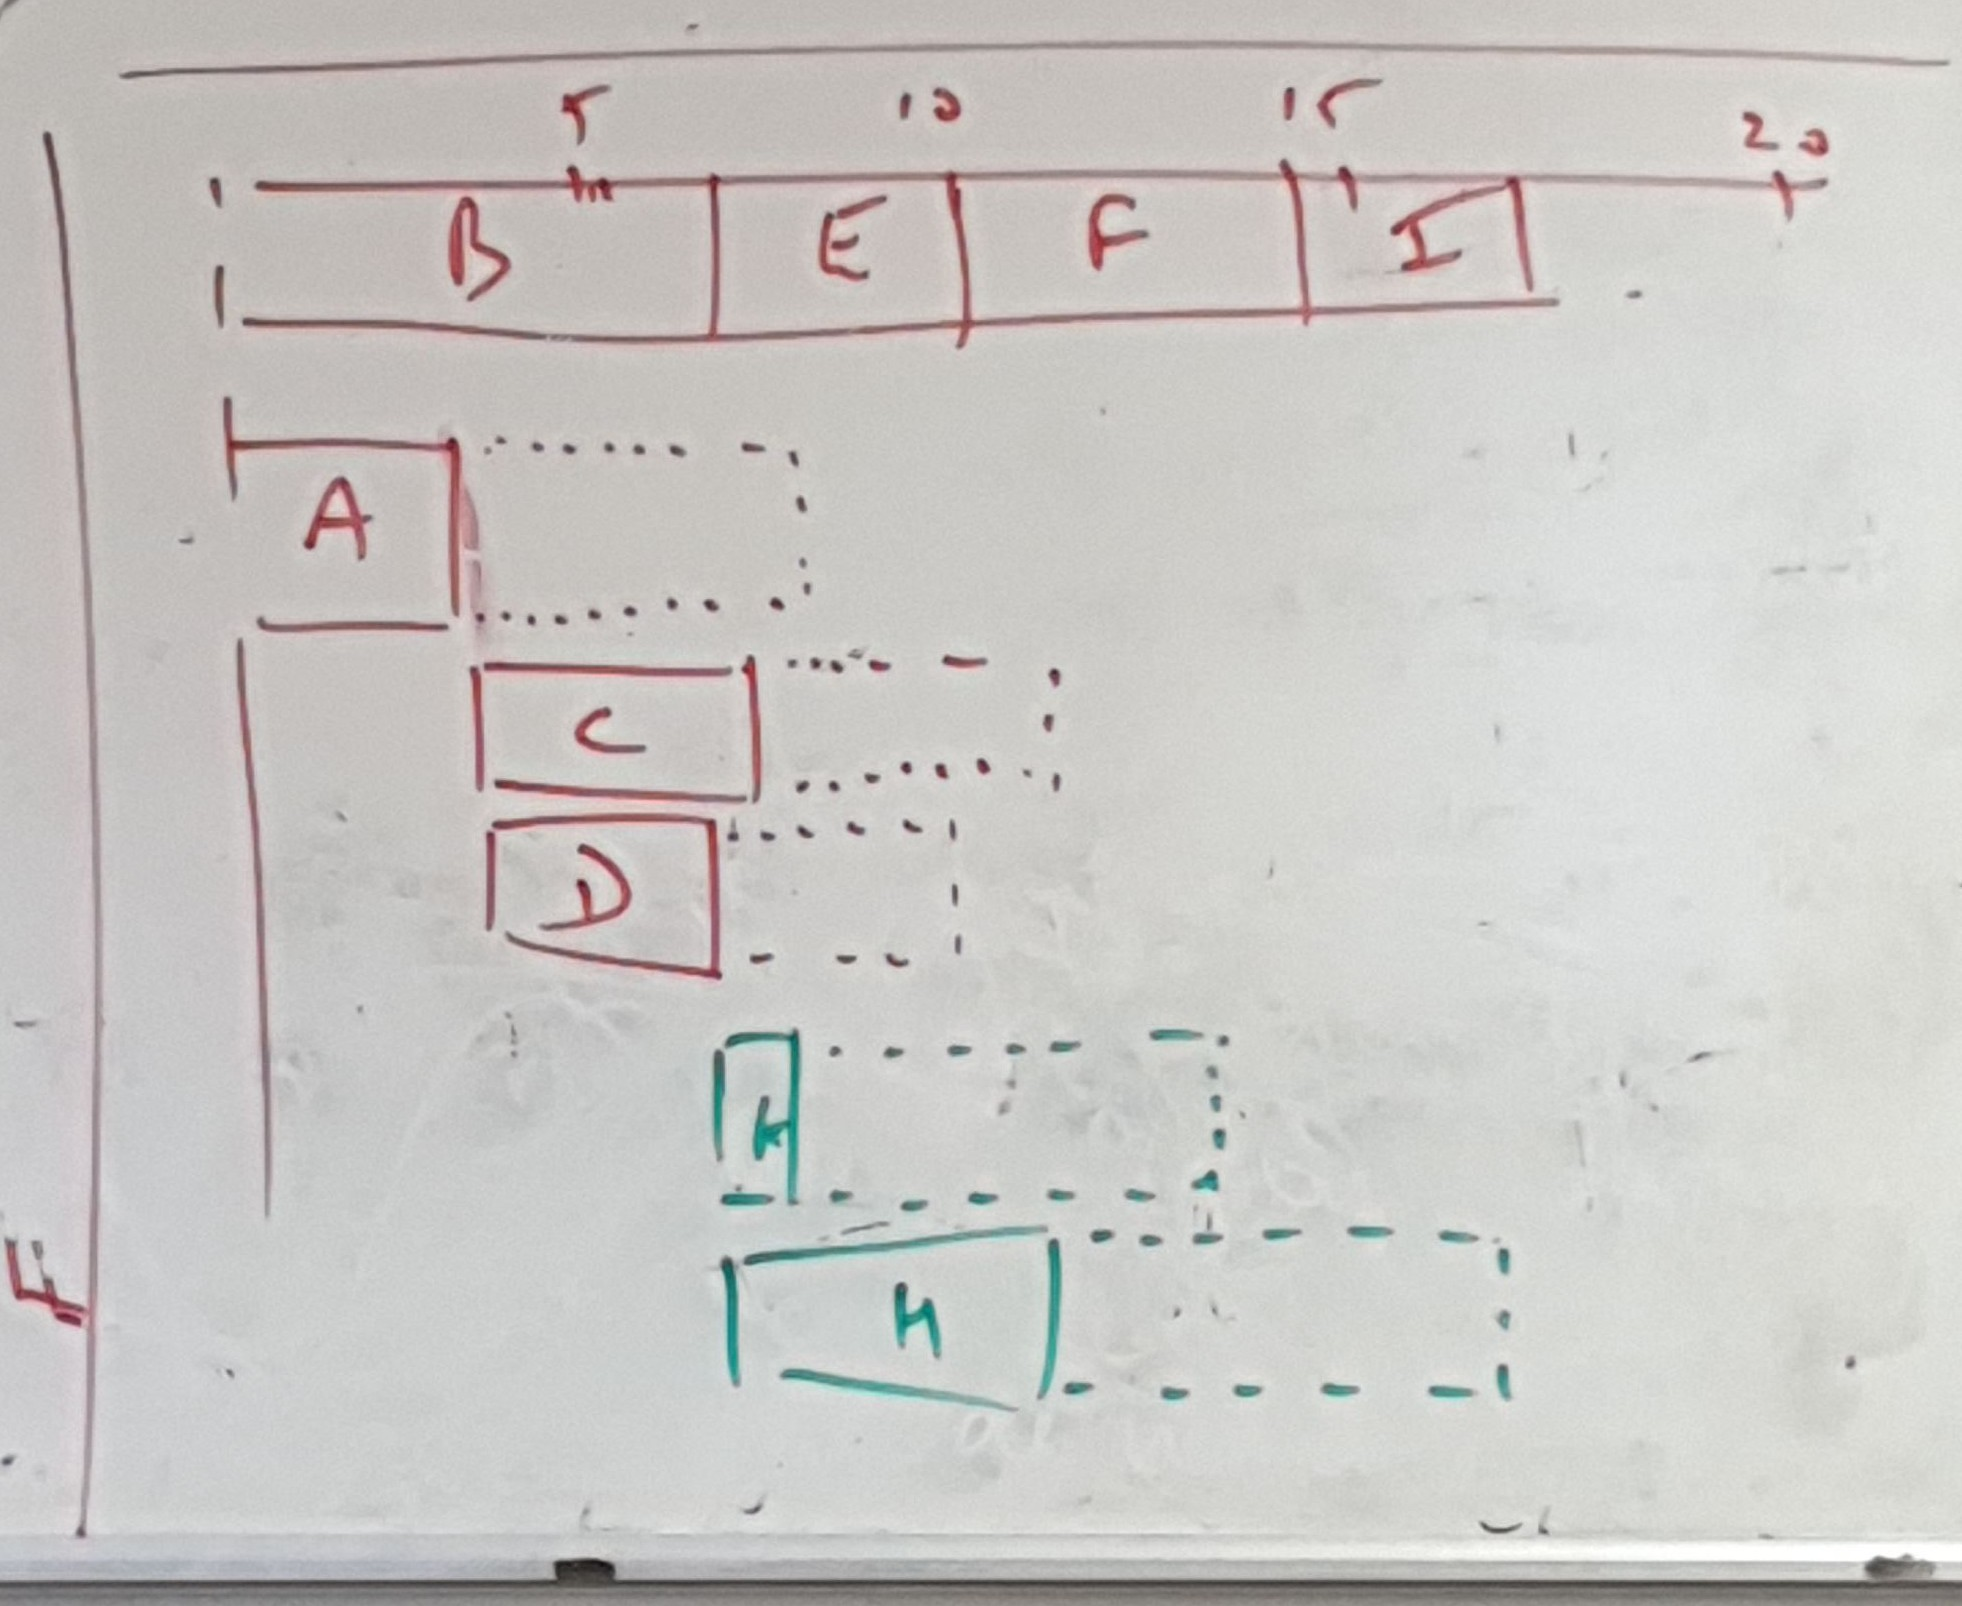 5 10 15 20
B E F I
A
C
D
H